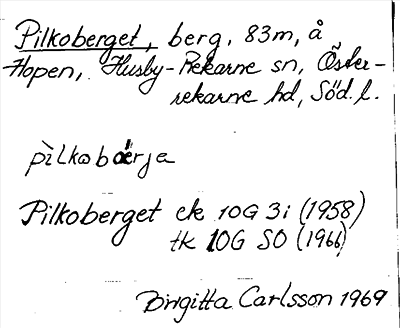 Pilkoberget, berg, 83m, å
Hopen, Husby-Rekarne sn, Öster-
rekarne hd, Söd. l.
pìlkobærja
Pilkoberget ek 10G 3i (1958)
tk 10G SO (1966)
Birgitta Carlsson 1969